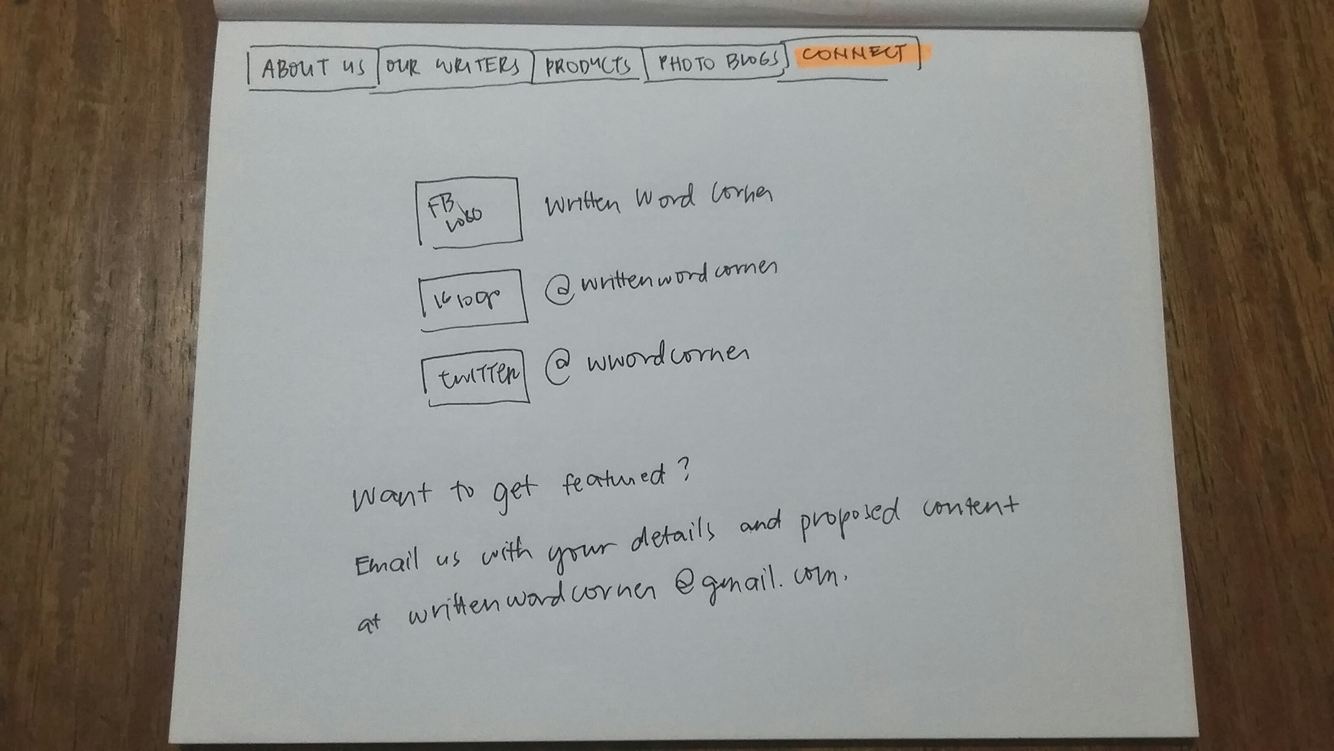 ABOUT US OUR WRITERS PRODUCTS PHOTO BLOGS CONNECT
FB LOGO Written Word Corner
IG logo @writtenwordcorner
TWITTER @wwordcorner
Want to get featured?
Email us with your details and proposed content
at writtenwordcorner@gmail.com.